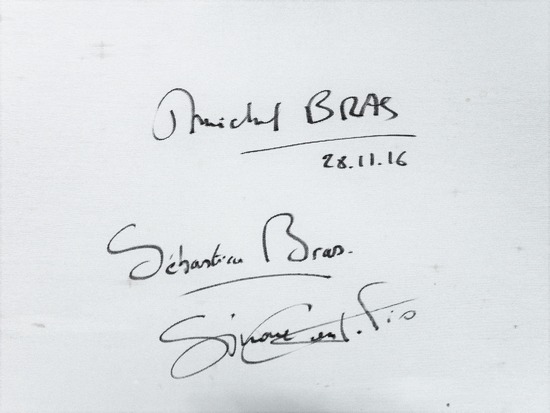 Michel BRAS
28.11.16
Sébastien Bras.
Simone